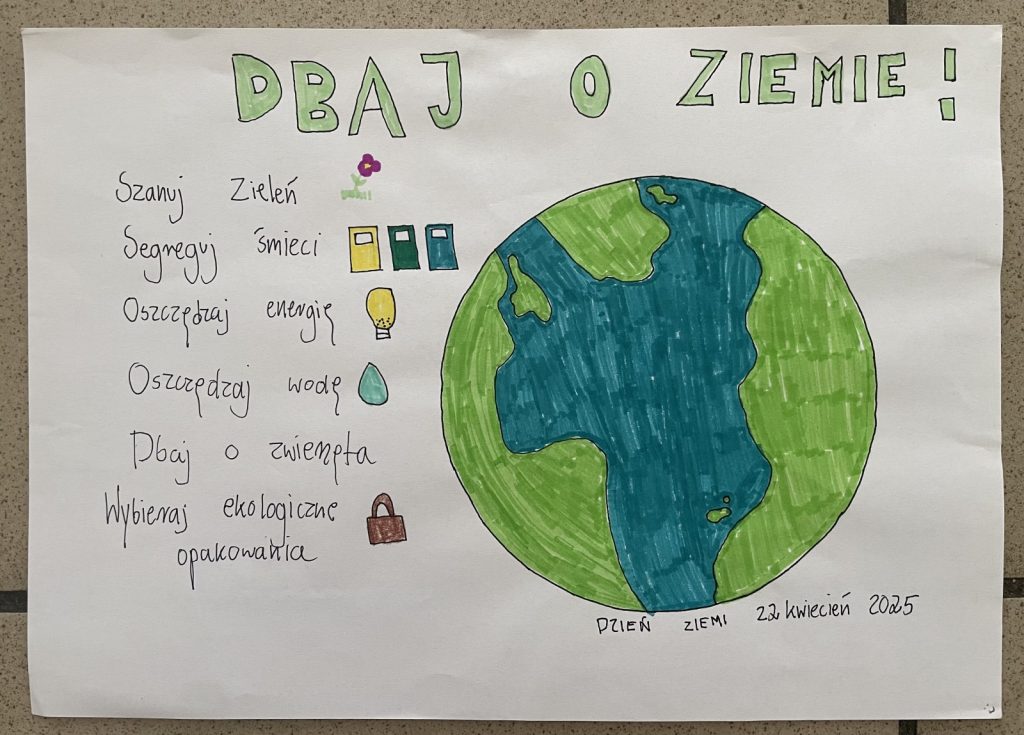 DBAJ O ZIEMIE!
Szanuj Zieleń
Segreguj śmieci
Oszczędzaj energię
Oszczędzaj wodę
Dbaj o zwierzęta
Wybieraj ekologiczne
opakowania
DZIEŃ ZIEMI 22 kwiecień 2025